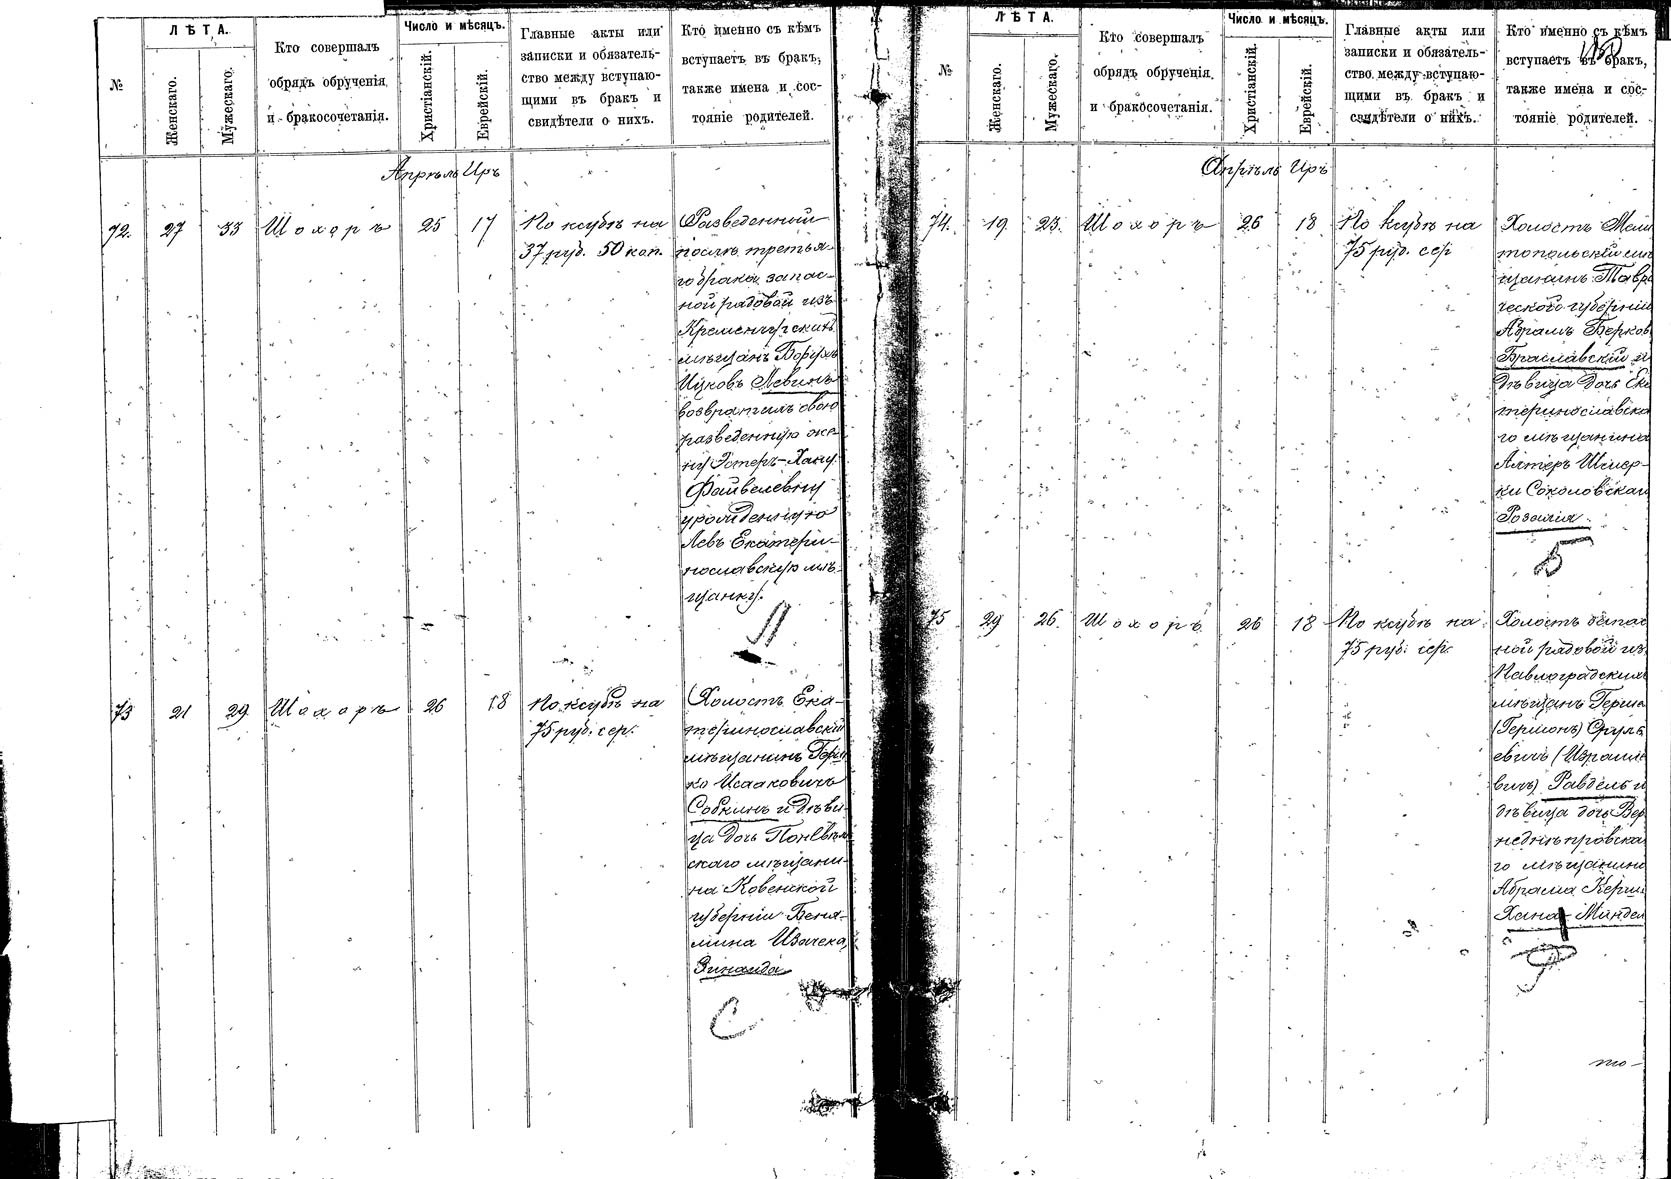 №
ЛѢТА.
Женскаго.
Мужескаго.
Кто совершалъ
обрядъ обрученія
и бракосочетанія.
Число и мѣсяцъ.
Христіанскій.
Еврейскій.
Главные акты или
записки и обязатель-
ство между вступаю-
щими въ бракъ и
свидѣтели о нихъ.
Кто именно съ кѣмъ
вступаетъ въ бракъ,
также имена и сос-
тояніе родителей.
Апрѣль Иръ
72. 27 33 Шохоръ 25 17
По ксубѣ на
37 руб. 50 коп.
Разведенный
послѣ третья-
го брака запас-
ной рядовой изъ
Кременчугскихъ
мѣщанъ Борухъ
Ицковъ Левинъ
возвратилъ свою
разведенную же-
ну Эстеръ-Хану
Файвелевну
урожденную
Левъ Екатери-
нославскую мѣ-
щанку.
Л
73 21 29 Шохоръ 26 18
По ксубѣ на
75 руб. сер.
Холостъ Ека-
теринославскій
мѣщанинъ
ко Исааковичъ
Собкинъ и дѣви-
ца дочь
скаго мѣщани-
на Ковенской
губерніи Беня-
мина
Зинаида
С
№
ЛѢТА.
Женскаго.
Мужескаго.
Кто совершалъ
обрядъ обрученія
и бракосочетанія.
Число и мѣсяцъ.
Христіанскій.
Еврейскій.
Главные акты или
записки и обязатель-
ство между вступаю-
щими въ бракъ и
свидѣтели о нихъ.
Кто именно съ кѣмъ
вступаетъ въ бракъ,
также имена и сос-
тояніе родителей.
Апрѣль Иръ
74. 19 23. Шохоръ 26 18
По ксубѣ на
75 руб. сер
Холостъ Мели
топольскій мѣ
щанинъ Таври
ческой губерніи
Абрамъ Берков
Браславскій и
дѣвица дочь Ека
теринославска
го мѣщанина
Алтеръ Шмер-
ки Соколовская
Розалія
Б
75 29 26. Шохоръ 26 18
По ксубѣ на
75 руб. сер.
Холостъ запас
ной рядовой изъ
Павлоградскихъ
мѣщанъ Герша
(Гершонъ) Сруль
евичъ (Израиле
вичъ) Равдель и
дѣвица дочь Вер
недѣпровска
го мѣщанина
Абрама
Хана-Миндел
Р
то-